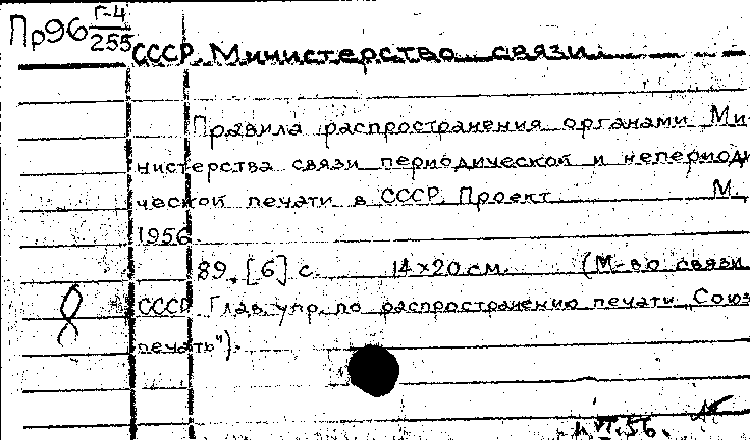 Пр96 Г-4/255
СССР. Министерство связи.
Правила распространения органами Ми-
нистерства связи периодической и непериоди-
ческой печати в СССР. Проект. М.,
1956.
89, [6] с. 14×20 см. (М-во связи
СССР. Глав. упр. по распространению печати „Союз-
печать").
VI.56.